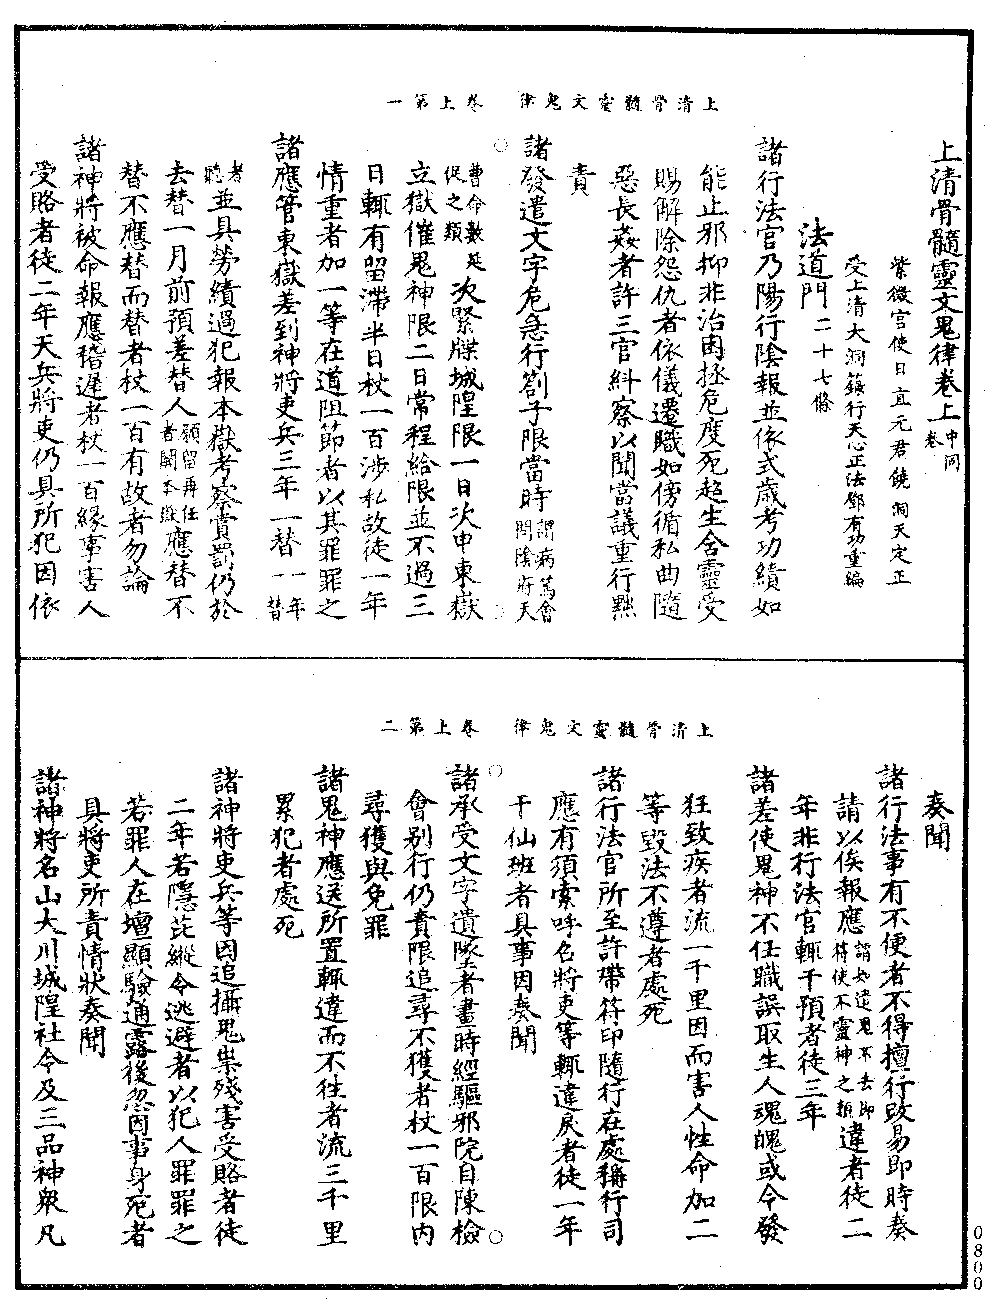 上清骨髓靈文鬼律　卷上第一
上清骨髓靈文鬼律卷上中同卷
紫微宮使日直元君饒洞天定正
受上清大洞籙行天心正法鄧有功重編
法道門二十七條
諸行法官乃陽行陰報並依式歲考功績如
能止邪抑非治困拯危度死超生含靈受
賜解除怨仇者依儀遷職如傍循私曲隨
惡長姦者許三官糾察以聞當議重行黜
責
諸發遣文字危急行劄子限當時謂病篤會問陰府天
曹命數延促之類次緊牒城隍限一日次申東嶽
立獄催鬼神限二日常程給限並不過三
日輒有留滯半日杖一百涉私故徒一年
情重者加一等在道阻節者以其罪罪之
諸應管東嶽差到神將吏兵三年一替一年一替
者聽並具勞績過犯報本嶽考察賞罰仍於
去替一月前預差替人願留再任者關本嶽應替不
替不應替而替者杖一百有故者勿論
諸神將被命報應稽遲者杖一百緣事害人
受賂者徒二年天兵將吏仍具所犯因依
上清骨髓靈文鬼律　卷上第二
奏聞
諸行法事有不便者不得擅行改易即時奏
請以俟報應謂如遣鬼不去即將使不靈神之類違者徒二
年非行法官輒干預者徒三年
諸差使鬼神不任職誤取生人魂魄或令發
狂致疾者流一千里因而害人性命加二
等毀法不遵者處死
諸行法官所至許帶符印隨行在處稱行司
應有須索呼名將吏等輒違戾者徒一年
干仙班者具事因奏聞
諸承受文字遺墜者畫時經驅邪院自陳檢
會別行仍責限追尋不獲者杖一百限内
尋獲與免罪
諸鬼神應送所置輒違而不徃者流三千里
累犯者處死
諸神將吏兵等因追攝鬼祟殘害受賂者徒
二年若隱芘縱令逃避者以犯人罪罪之
若罪人在壇顯驗通露後忽因事身死者
具將吏所責情狀奏聞
諸神將名山大川城隍社令及三品神衆凡
0800